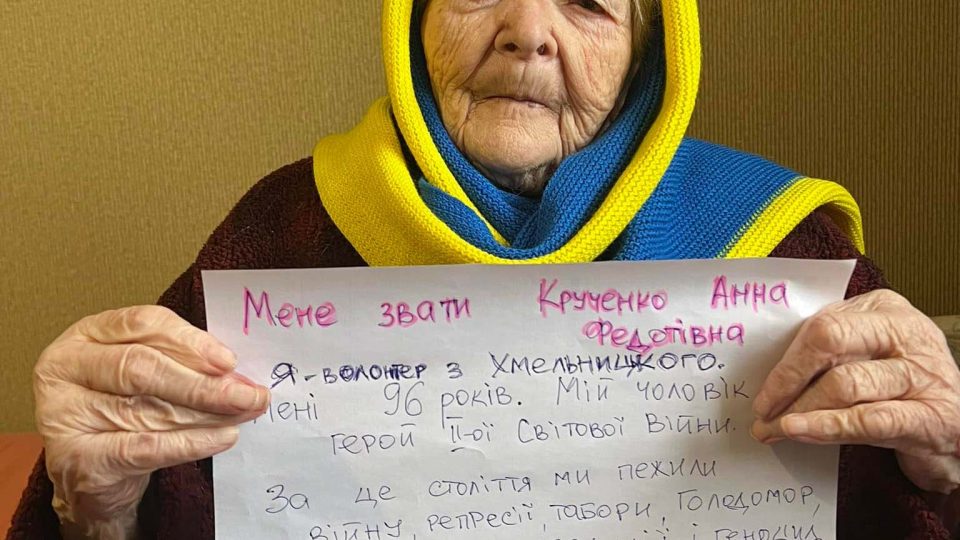 Мене звати Крученко Анна
Федотівна
Я-волонтер з Хмельницкого.
Мені 96 років. Мій чоловік
герой ІІ-ої Світової Війни.
За це століття ми пежили
війну, репресії, табори, Голодомор,
і геноцид